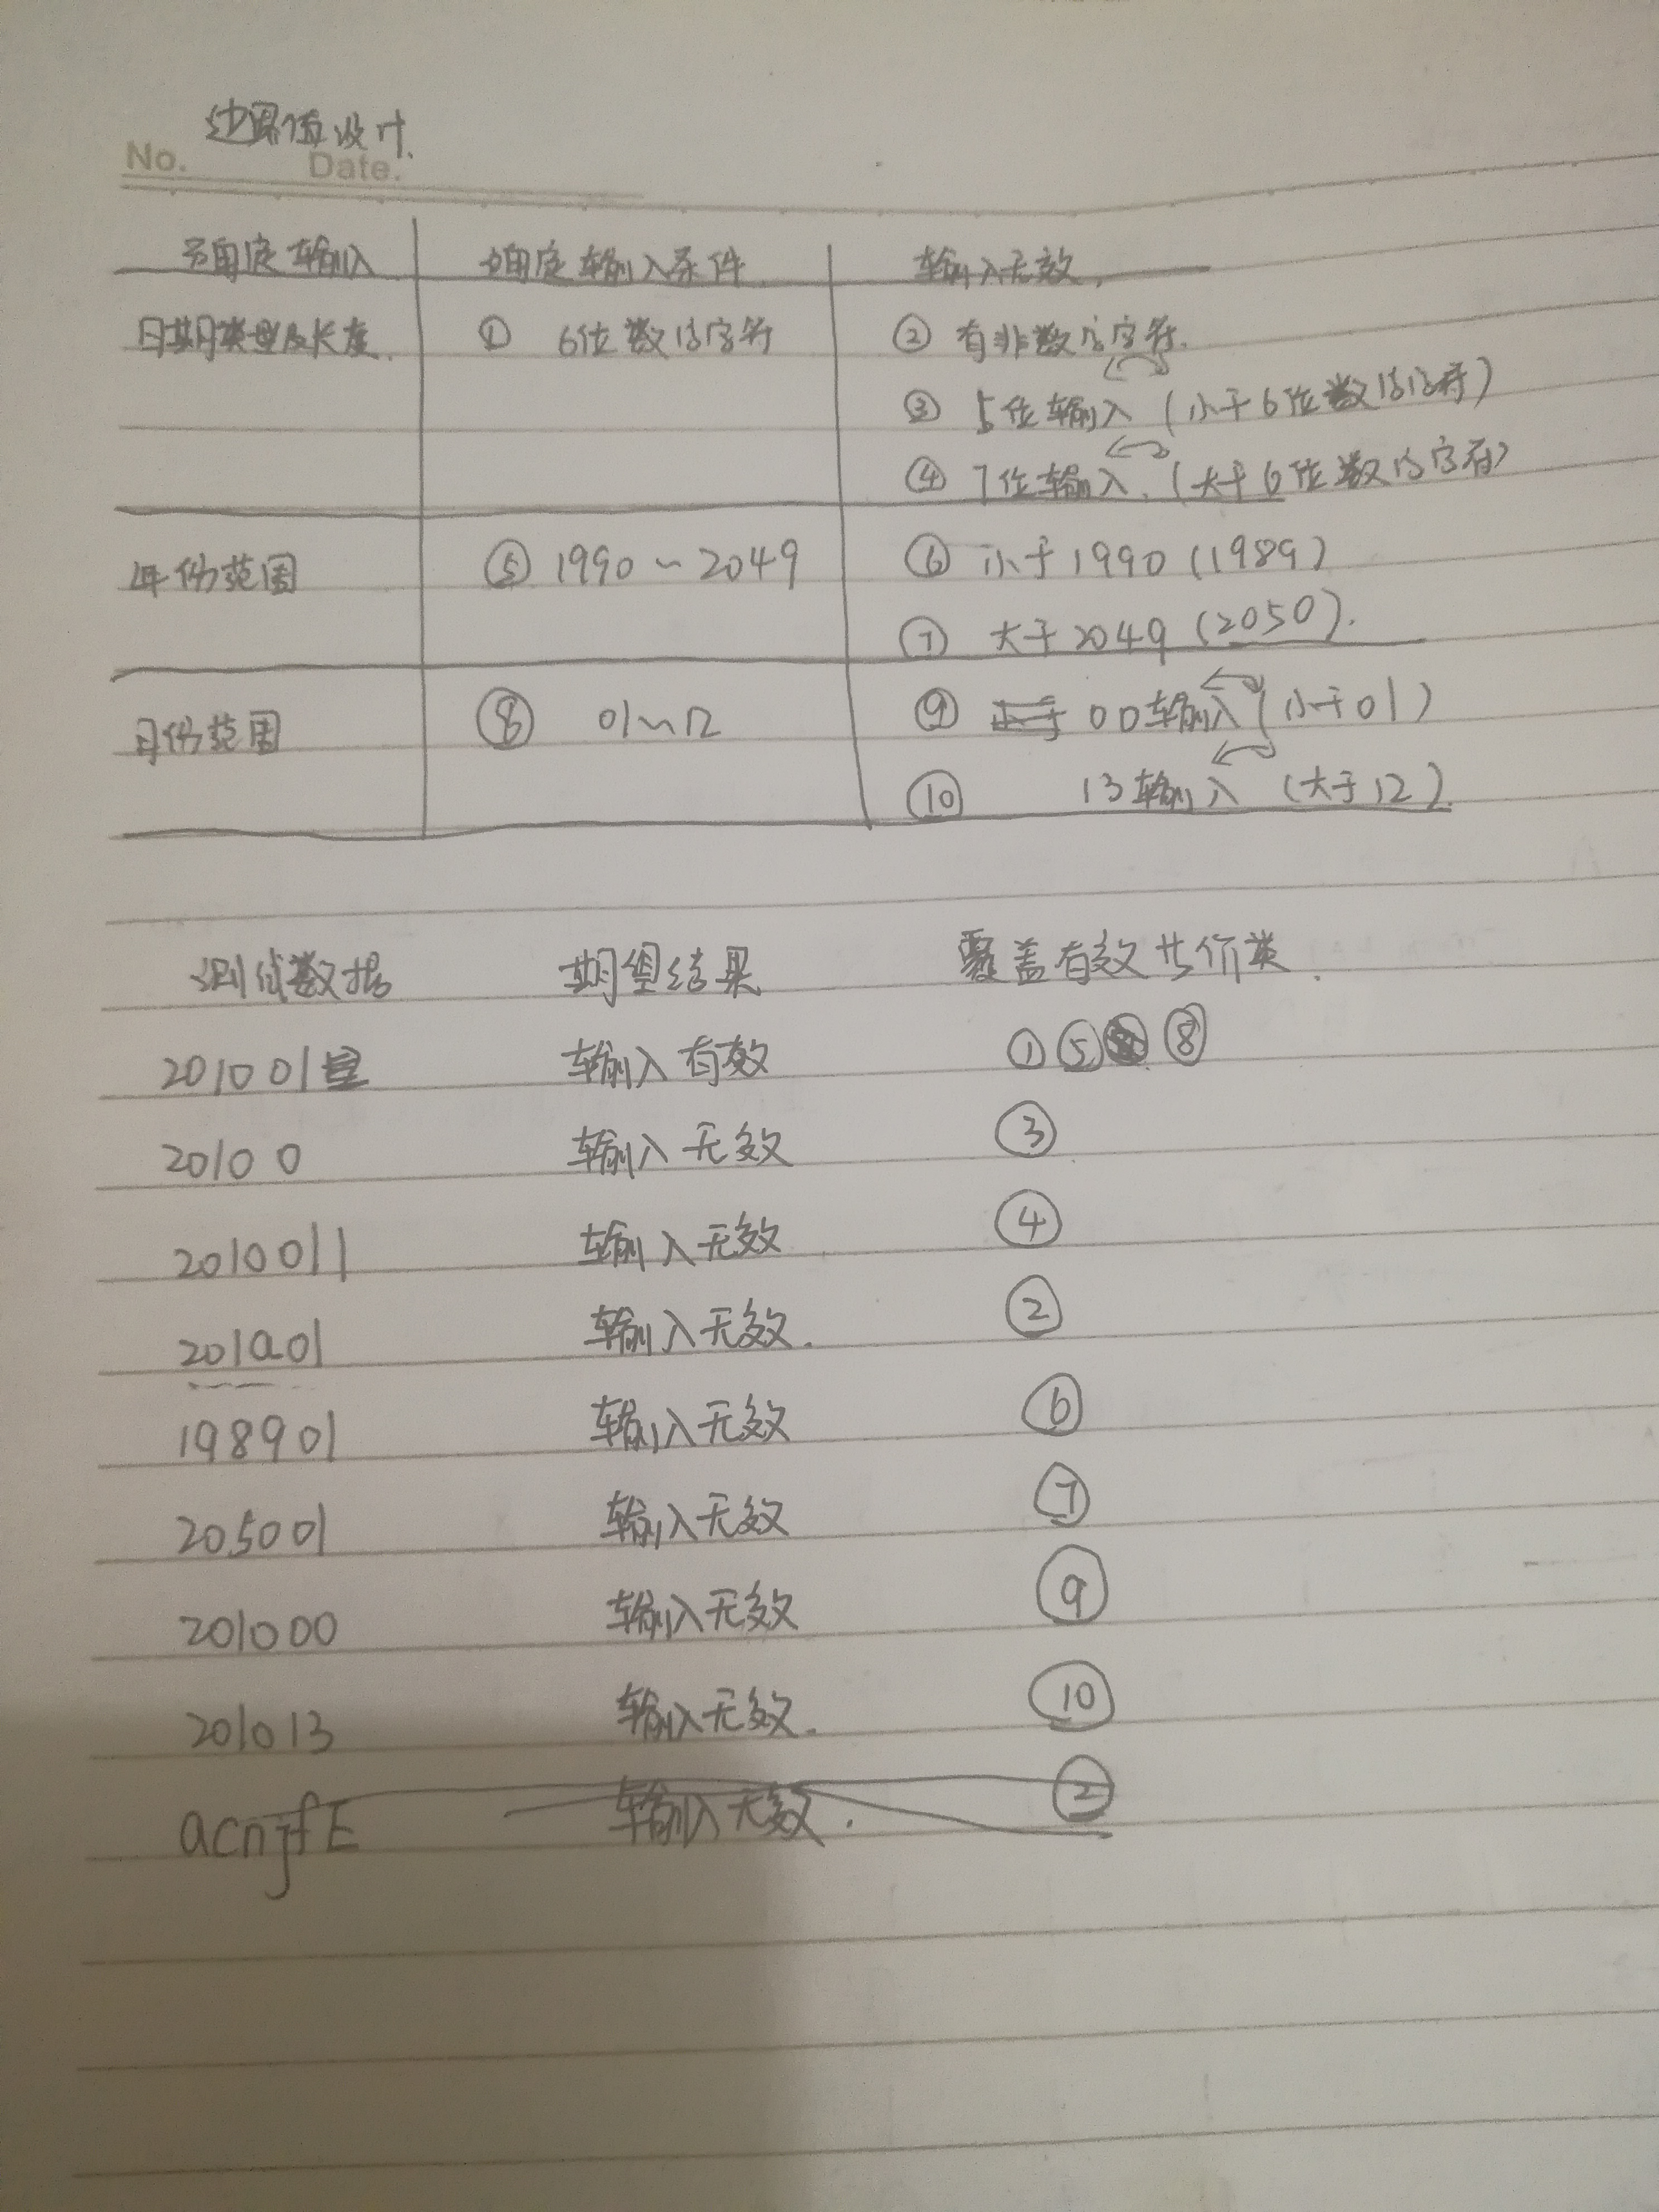 边界值设计.
No. Date.
确定输入 确定输入条件 输入无效.
日期类型及长度. ① 6位数字字符 ② 有非数字字符.
③ 5位输入 (小于6位数字字符)
④ 7位输入. (大于6位数字字符)
年份范围 ⑤ 1990~2049 ⑥ 小于1990 (1989)
⑦ 大于2049 (2050).
月份范围 ⑧ 01~12 ⑨ 00输入 (小于01)
⑩ 13输入 (大于12)
测试数据 期望结果 覆盖有效等价类.
201001 输入有效 ① ⑤ ⑧
20100 输入无效 ③
2010011 输入无效 ④
201a01 输入无效. ②
198901 输入无效 ⑥
205001 输入无效 ⑦
201000 输入无效 ⑨
201013 输入无效. ⑩
acnjfE 输入无效. ②